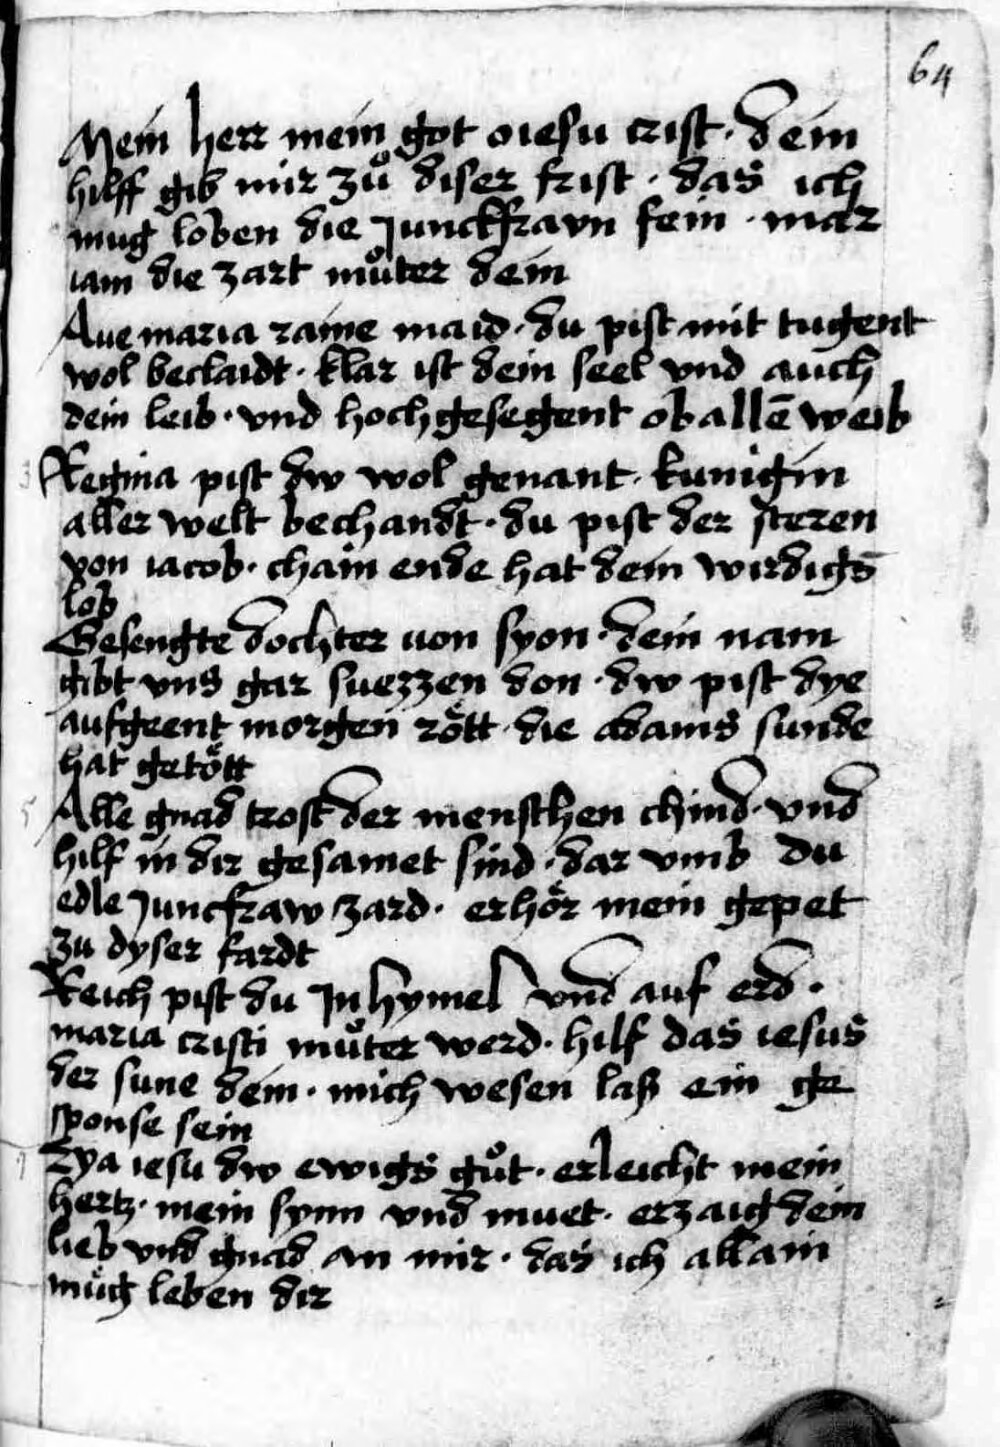 64
Mein herr mein got o iesu crist · dein
hilff gib mir zů diser frist · das ich
mug loben die Junckfravn fein · mar
iam die zart můter dein
Aue maria raine maid · du pist mit tugent
wol beclaidt · klar ist dein seel vnd auch
dein leib · vnd hoch gesegent ob allē weib
3 Regina pist dw wol genant · kunigin
aller welt bechandt · du pist der steren
von iacob · chain ende hat dein wirdigs
lob
Gesengte dochter von syon · dein nam
gibt vns gar suezzen don · dw pist dye
aufgeent morgen rött · die adams sunde
hat getött
5 Alle gnad trost der menschen chind · vnd
hilf in dir gesamet sind · dar vmb du
edle Juncfraw zard · erhör mein gepet
zu dyser fardt
Reich pist du In hymel vnd auf erd ·
maria cristi můter werd · hilf das iesus
der sune dein · mich wesen laß ein ge
sponse sein
7 Eya iesu dw ewigs gůt · erleicht mein
hertz · mein synn vnd muet · erzaig dein
lieb vnd gnad an mir · das ich allain
müg leben dir